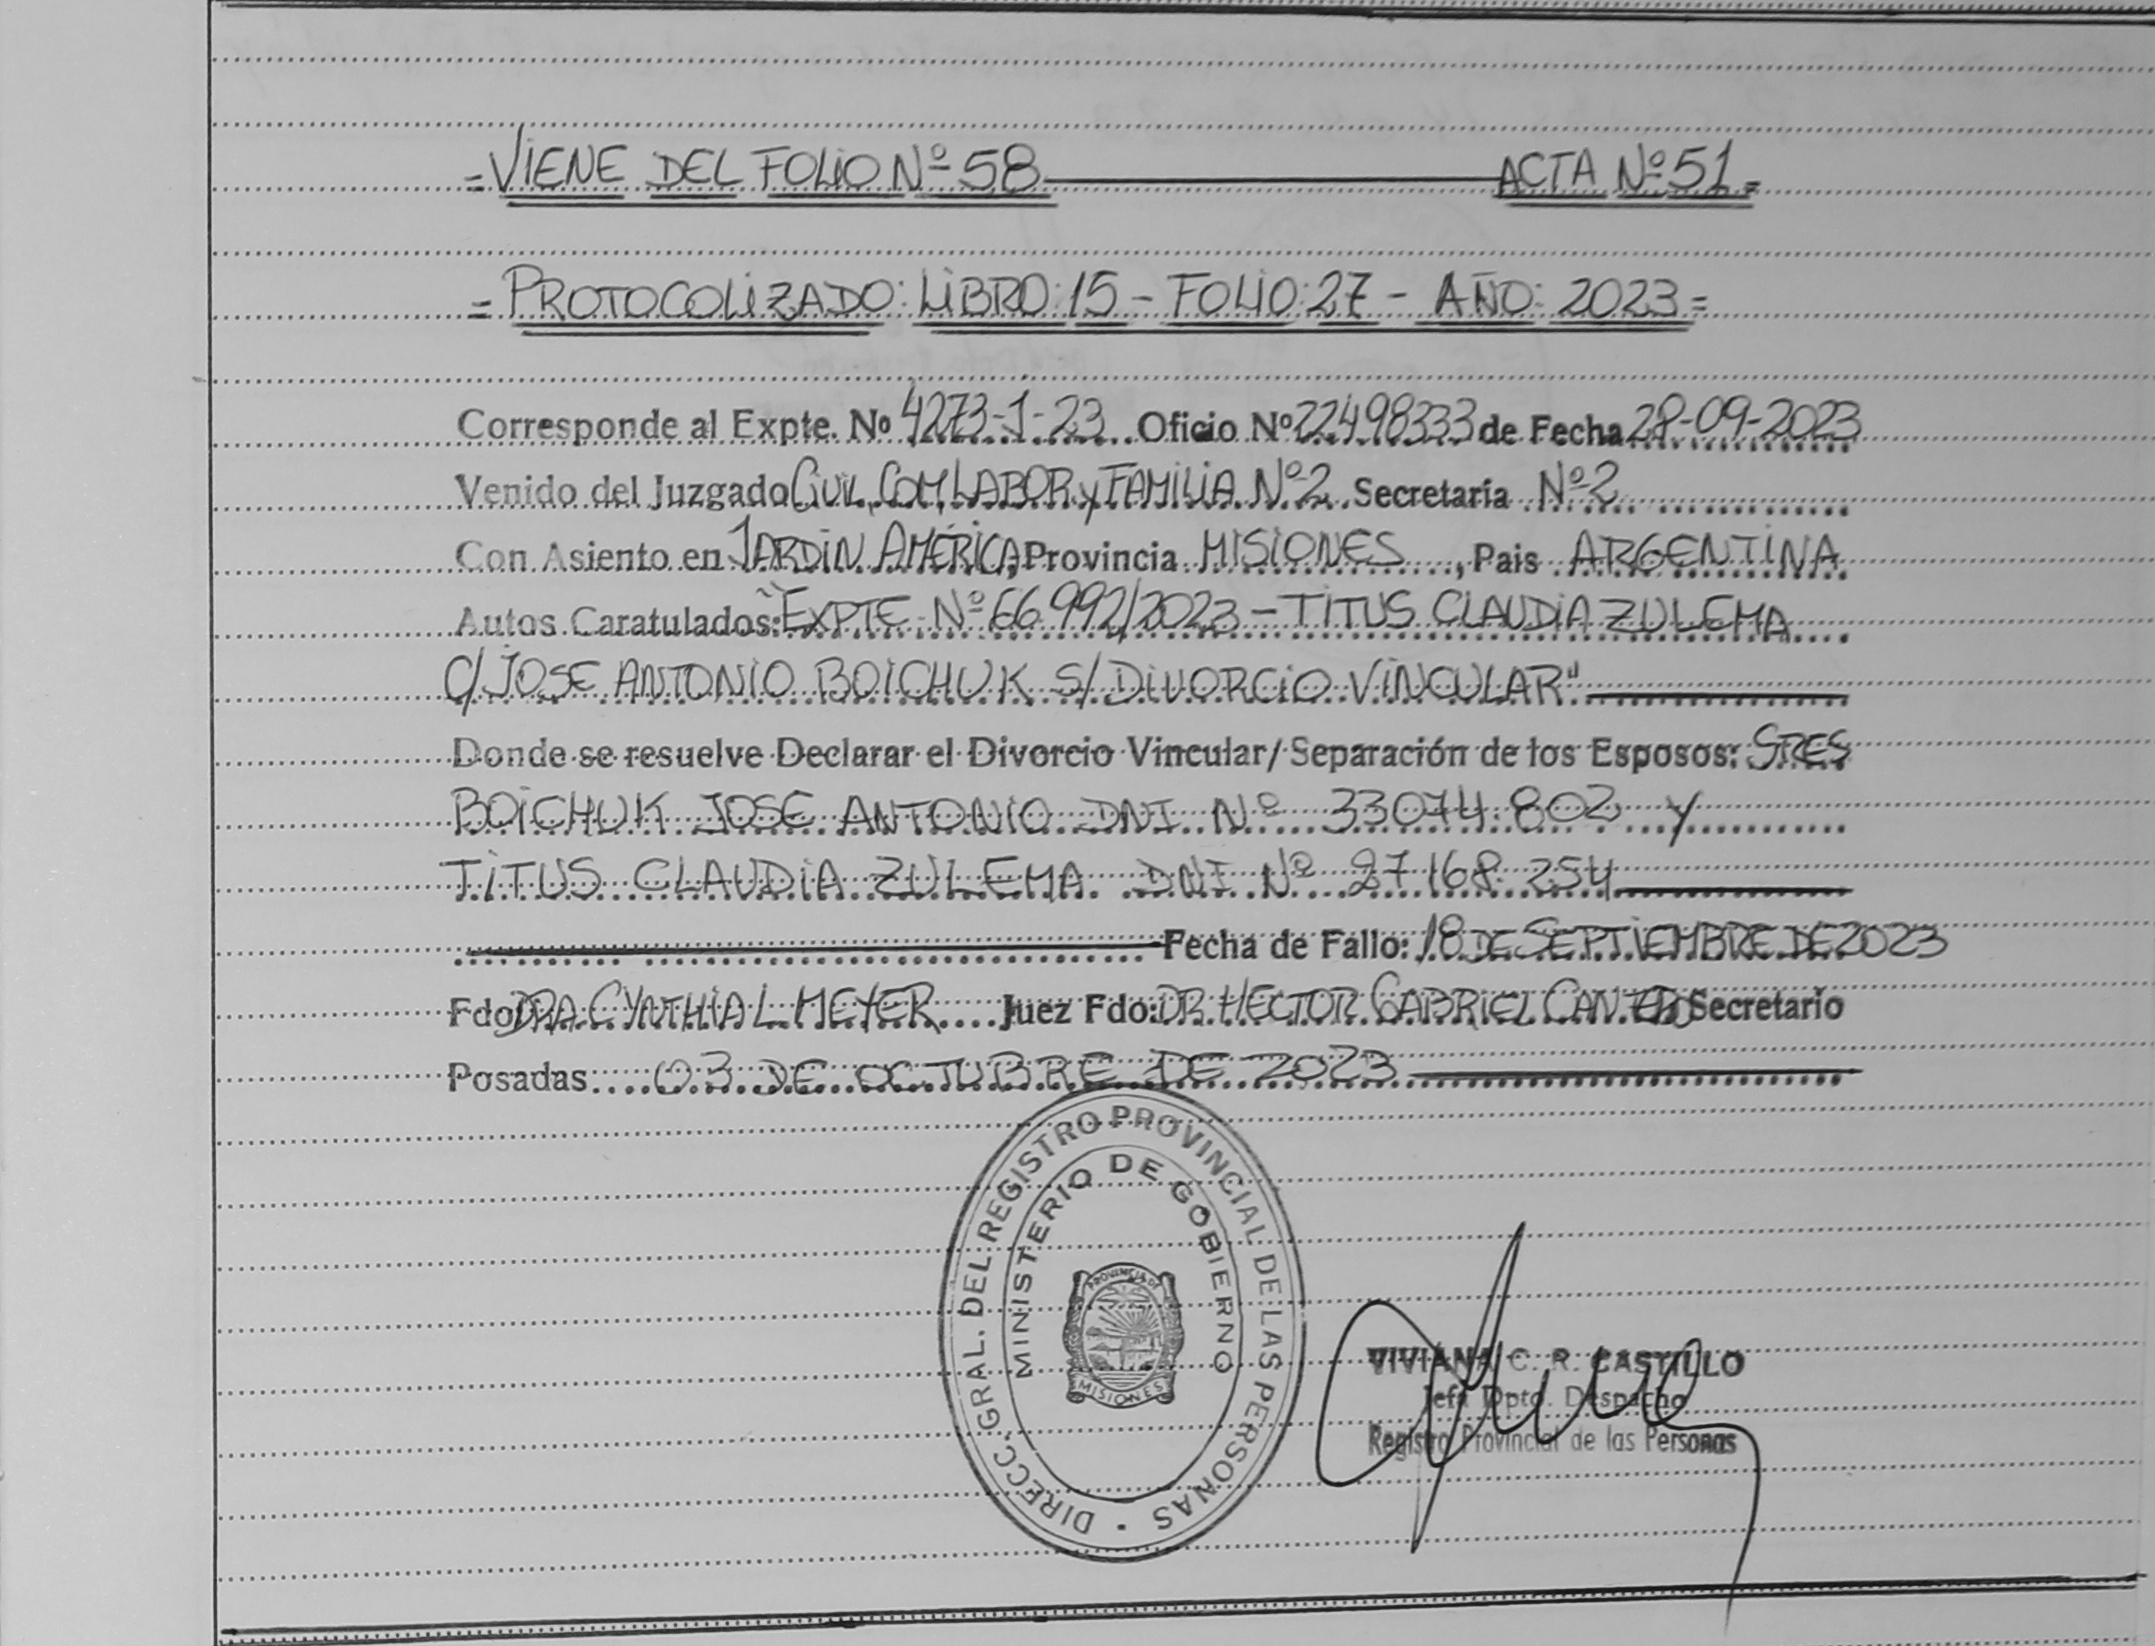 =VIENE DEL FOLIO Nº 58 ACTA Nº 51=
=PROTOCOLIZADO: LIBRO: 15 - FOLIO: 27 - AÑO: 2023=
Corresponde al Expte. Nº 4273-J-23 Oficio Nº 22498333 de Fecha 28-09-2023
Venido del Juzgado CIVIL, COM, LABOR y FAMILIA Nº 2 Secretaría Nº 2
Con Asiento en JARDIN AMÉRICA, Provincia MISIONES, Pais ARGENTINA
Autos Caratulados: "EXPTE Nº 66992/2023 - TITUS CLAUDIA ZULEMA
C/ JOSE ANTONIO BOICHUK S/ DIVORCIO VINCULAR"
Donde se resuelve Declarar el Divorcio Vincular/ Separación de los Esposos: SRES
BOICHUK JOSE ANTONIO DNI Nº 33074.802 Y
TITUS CLAUDIA ZULEMA. DNI Nº 27.168.254
Fecha de Fallo: 18 DE SEPTIEMBRE DE 2023
Fdo: DRA CYNTHIA L MEYER Juez Fdo: DR. HECTOR GABRIEL Secretario
Posadas 03 DE OCTUBRE DE 2023
DIRECC. GRAL. DEL REGISTRO PROVINCIAL DE LAS PERSONAS
MINISTERIO DE GOBIERNO
PROVINCIA DE
MISIONES
VIVIANA C. R. CASTILLO
Jefa Dpto. Despacho
Registro Provincial de las Personas